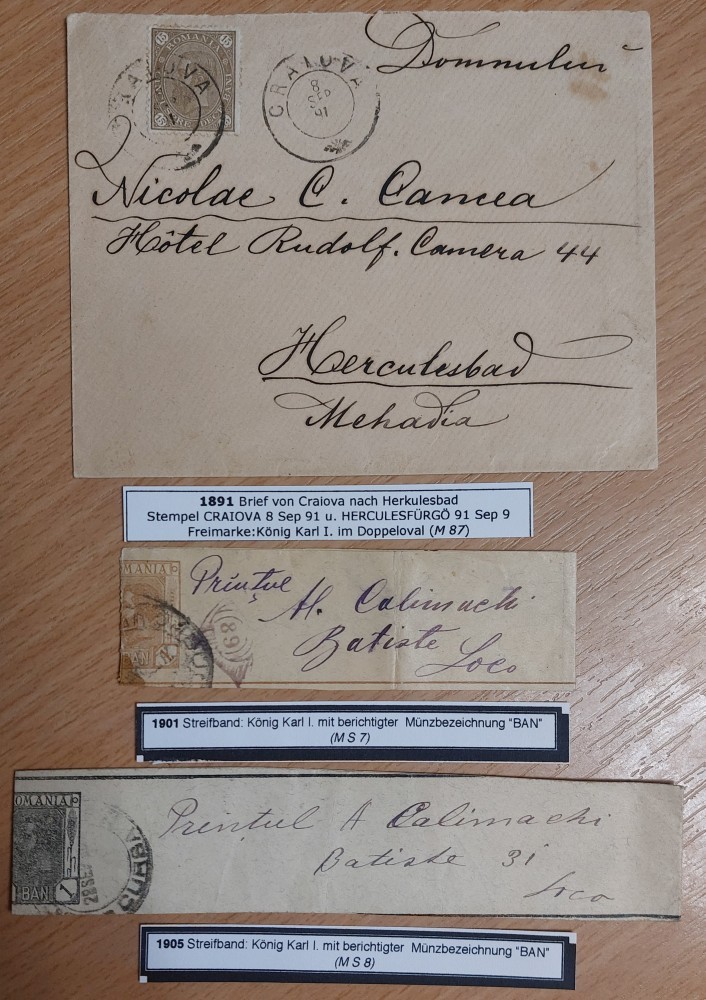 15 ROMANIA 15
15 15
CRAIOVA
CRAIOVA
8 SEP 91
Domnului
Nicolae C. Camea
Hôtel Rudolf. Camera 44
Herculesbad
Mehadia
1891 Brief von Craiova nach Herkulesbad
Stempel CRAIOVA 8 Sep 91 u. HERCULESFÜRGÖ 91 Sep 9
Freimarke:König Karl I. im Doppeloval (M 87)
MANIA
BAN 1
68
Prințul
Al. Calimachi
Batiste
Loco
1901 Streifband: König Karl I. mit berichtigter Münzbezeichnung "BAN"
(M S 7)
OMANIA
BAN 1
Printul A Calimachi
Batiste 31
Loco
1905 Streifband: König Karl I. mit berichtigter Münzbezeichnung "BAN"
(M S 8)